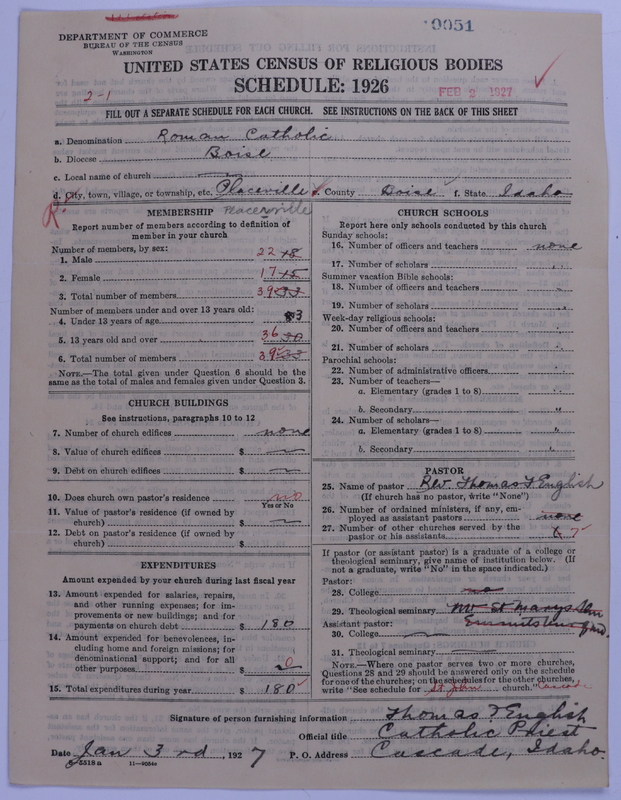 9051
DEPARTMENT OF COMMERCE
BUREAU OF THE CENSUS
WASHINGTON
UNITED STATES CENSUS OF RELIGIOUS BODIES
SCHEDULE: 1926
2-1
FEB 2 1927
FILL OUT A SEPARATE SCHEDULE FOR EACH CHURCH. SEE INSTRUCTIONS ON THE BACK OF THIS SHEET
a. Denomination Roman Catholic
b. Diocese Boise
c. Local name of church
d. City, town, village, or township, etc. Placerville e. County Boise f. State Idaho
R.
MEMBERSHIP Placerville
Report number of members according to definition of
member in your church
Number of members, by sex:
1. Male 22 18
2. Female 17 15
3. Total number of members 39 33
Number of members under and over 13 years old:
4. Under 13 years of age 3
5. 13 years old and over 36 30
6. Total number of members 39 33
NOTE.—The total given under Question 6 should be
same as the total of males and females given under Question 3.
CHURCH BUILDINGS
See instructions, paragraphs 10 to 12
7. Number of church edifices none
8. Value of church edifices $
9. Debt on church edifices $
10. Does church own pastor's residence no
Yes or No
11. Value of pastor's residence (if owned by
church) $
12. Debt on pastor's residence (if owned by
church) $
EXPENDITURES
Amount expended by your church during last fiscal year
13. Amount expended for salaries, repairs,
and other running expenses; for im-
provements or new buildings; and for
payments on church debt $ 180
14. Amount expended for benevolences, in-
cluding home and foreign missions; for
denominational support; and for all
other purposes $ 0
15. Total expenditures during year $ 180
CHURCH SCHOOLS
Report here only schools conducted by this church
Sunday schools:
16. Number of officers and teachers none
17. Number of scholars "
Summer vacation Bible schools:
18. Number of officers and teachers "
19. Number of scholars "
Week-day religious schools:
20. Number of officers and teachers "
21. Number of scholars "
Parochial schools:
22. Number of administrative officers "
23. Number of teachers—
a. Elementary (grades 1 to 8) "
b. Secondary "
24. Number of scholars—
a. Elementary (grades 1 to 8) "
b. Secondary "
PASTOR
25. Name of pastor Rev. Thomas F English
(If church has no pastor, write "None")
26. Number of ordained ministers, if any, em-
ployed as assistant pastors none
27. Number of other churches served by the
pastor or his assistants 6 7
If pastor (or assistant pastor) is a graduate of a college or
theological seminary, give name of institution below. (If
not a graduate, write "No" in the space indicated.)
Pastor:
28. College no
29. Theological seminary Mt St Marys Sem
Assistant pastor: Emmitsburg Md.
30. College
31. Theological seminary
NOTE.—Where one pastor serves two or more churches,
Questions 28 and 29 should be answered only on the schedule
for one of the churches; on the schedules for the other churches,
write "See schedule for St John church." Cascade
Signature of person furnishing information Thomas F English
Official title Catholic Priest
Date Jan 3rd, 1927 P. O. Address Cascade, Idaho.
11—9054